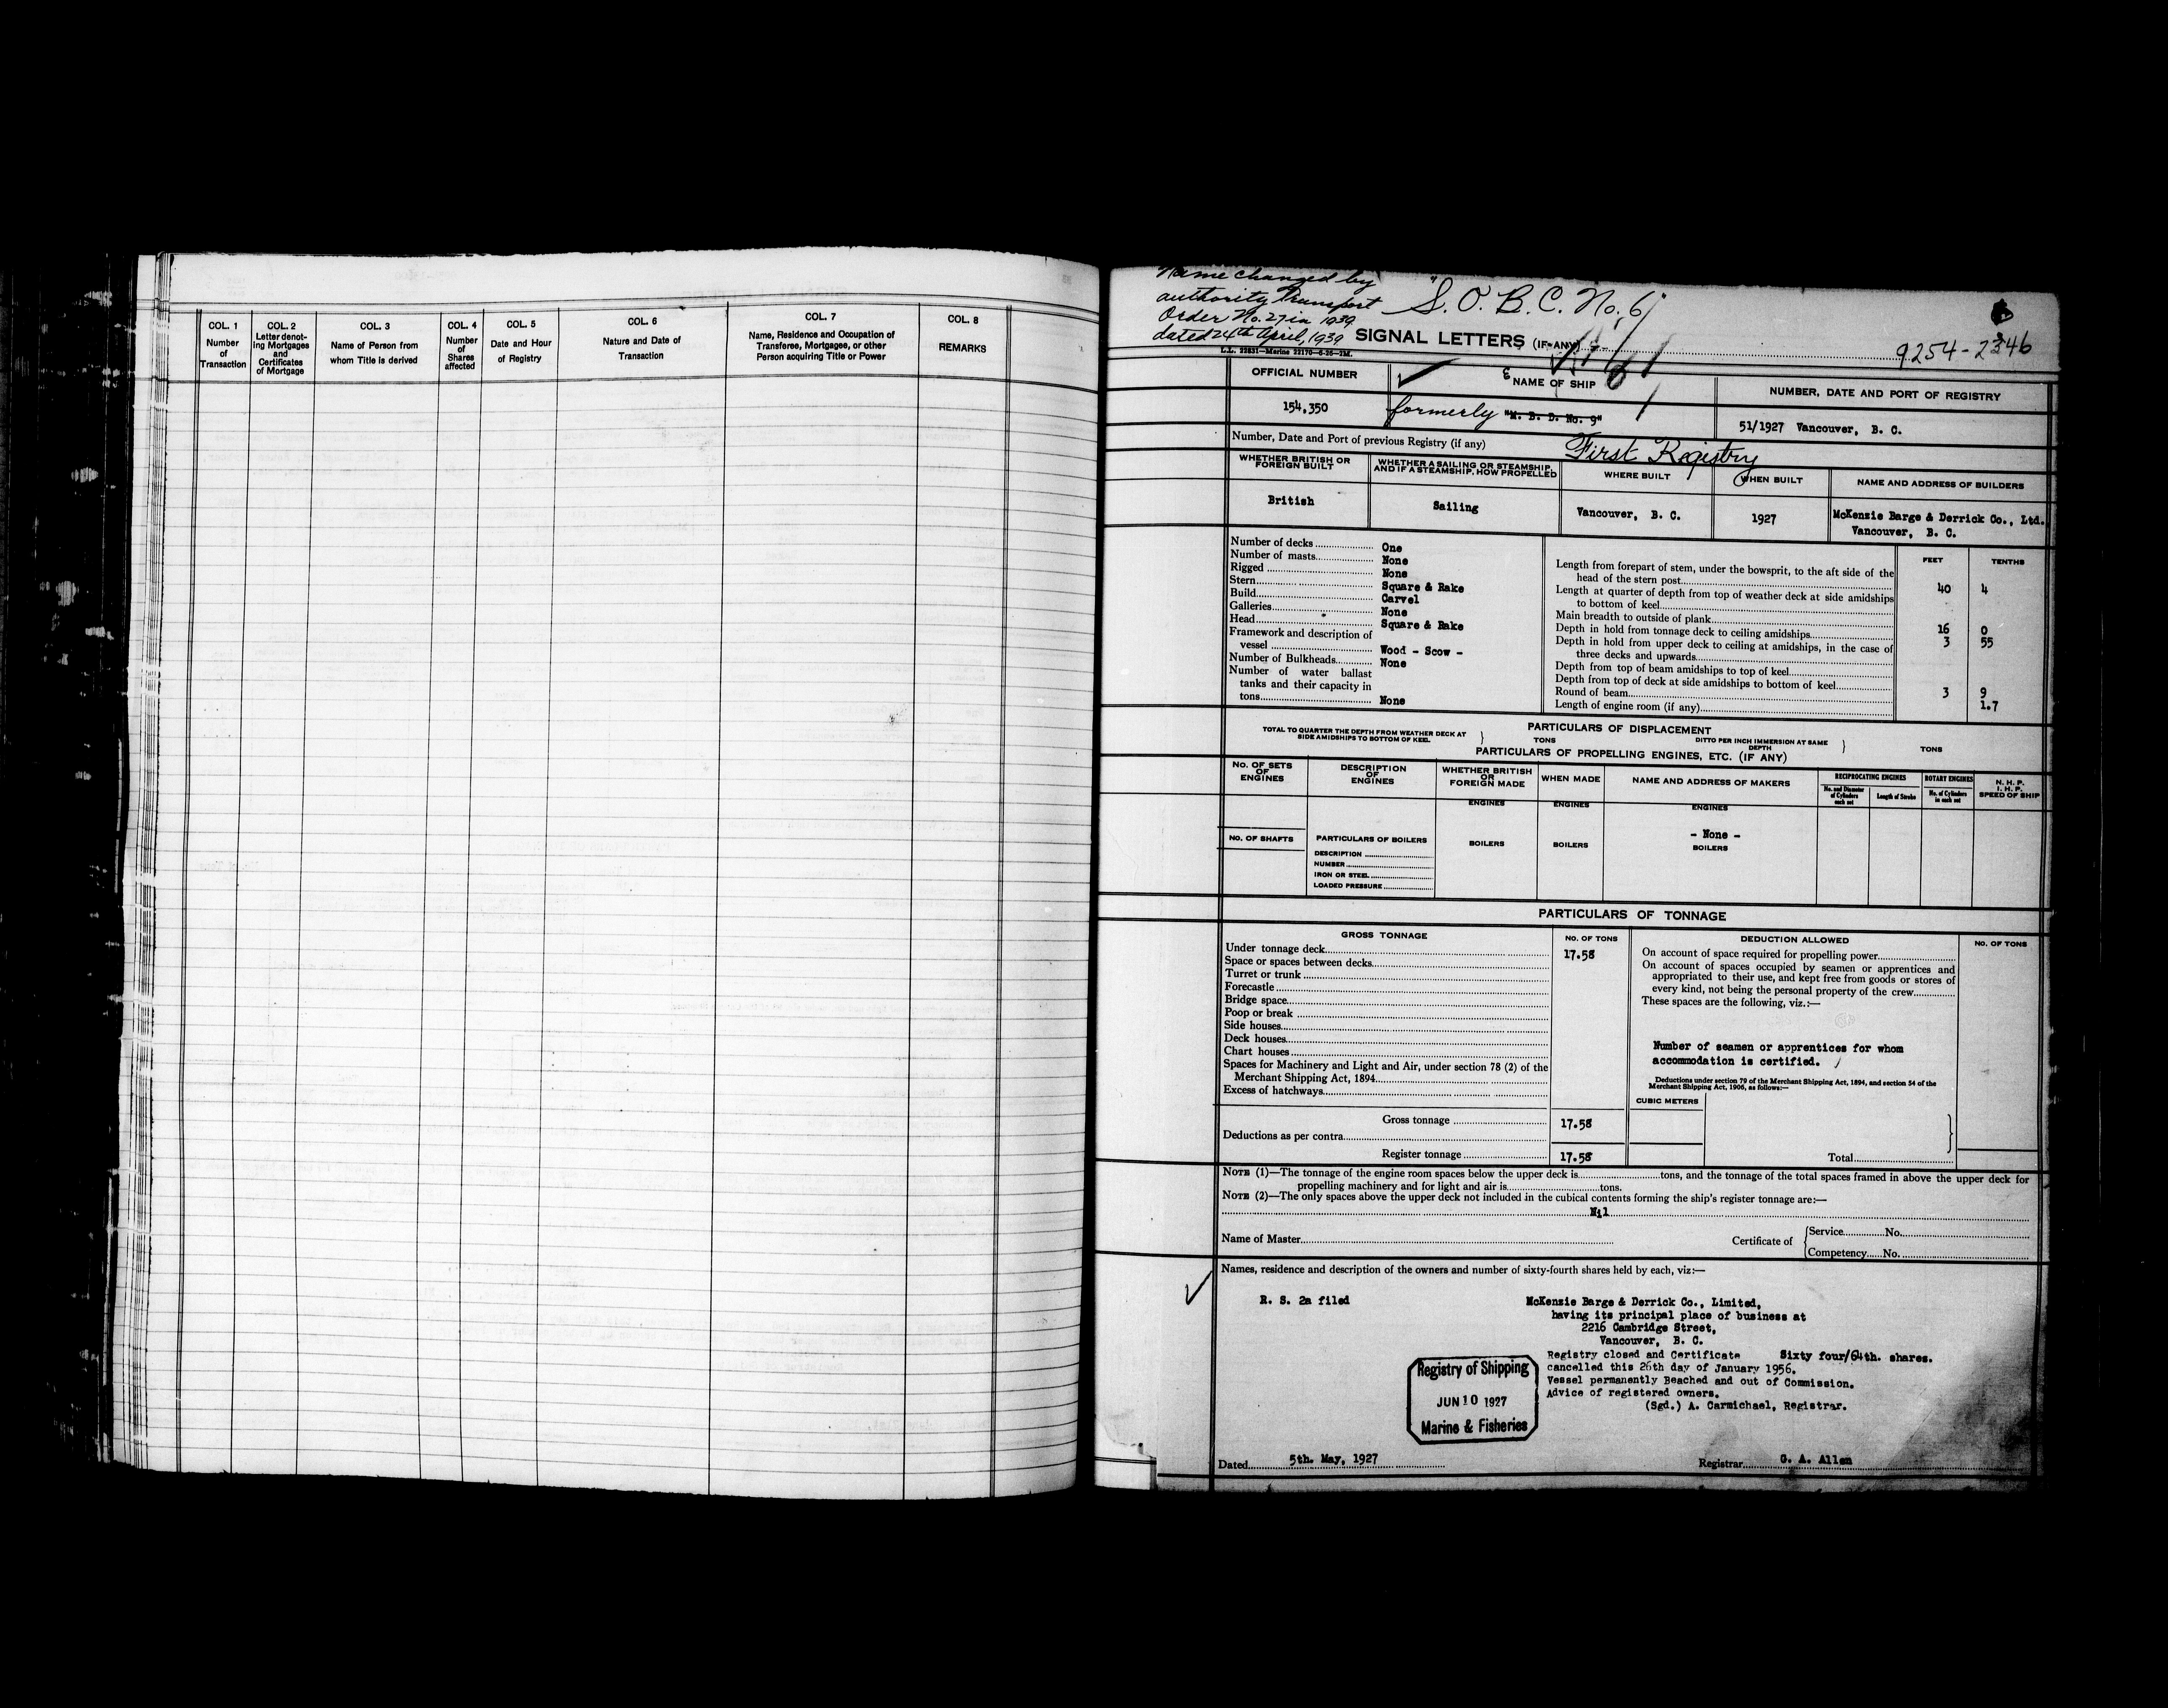 COL. 1
Number
of
Transaction
COL. 2
Letter denot-
ing Mortgages
and
Certificates
of Mortgage
COL. 3
Name of Person from
whom Title is derived
COL. 4
Number
of
Shares
affected
COL. 5
Date and Hour
of Registry
COL. 6
Nature and Date of
Transaction
COL. 7
Name, Residence and Occupation of
Transferee, Mortgagee, or other
Person acquiring Title or Power
COL. 8
REMARKS
Name changed by
authority Transport
Order No. 27 in 1939
dated 24th April, 1939
"S. O. B. C. No. 6"
SIGNAL LETTERS (IF ANY)
9254-2346
L.L. 22831—Marine 22170—6-25—2M.
OFFICIAL NUMBER
154,350
NAME OF SHIP
formerly "M. B. D. No. 9"
NUMBER, DATE AND PORT OF REGISTRY
51/1927 Vancouver, B. C.
Number, Date and Port of previous Registry (if any)
First Registry
WHETHER BRITISH OR
FOREIGN BUILT
British
WHETHER A SAILING OR STEAMSHIP,
AND IF A STEAMSHIP, HOW PROPELLED
Sailing
WHERE BUILT
Vancouver, B. C.
WHEN BUILT
1927
NAME AND ADDRESS OF BUILDERS
McKenzie Barge & Derrick Co., Ltd.
Vancouver, B. C.
Number of decks One
Number of masts None
Rigged None
Stern Square & Rake
Build Carvel
Galleries None
Head Square & Rake
Framework and description of
vessel Wood - Scow -
Number of Bulkheads None
Number of water ballast
tanks and their capacity in
tons None
FEET TENTHS
Length from forepart of stem, under the bowsprit, to the aft side of the
head of the stern post 40 4
Length at quarter of depth from top of weather deck at side amidships
to bottom of keel
Main breadth to outside of plank 16 0
Depth in hold from tonnage deck to ceiling amidships 3 55
Depth in hold from upper deck to ceiling at amidships, in the case of
three decks and upwards
Depth from top of beam amidships to top of keel
Depth from top of deck at side amidships to bottom of keel 3 9
Round of beam 1.7
Length of engine room (if any)
PARTICULARS OF DISPLACEMENT
TOTAL TO QUARTER THE DEPTH FROM WEATHER DECK AT
SIDE AMIDSHIPS TO BOTTOM OF KEEL.
TONS
DITTO PER INCH IMMERSION AT SAME
DEPTH
TONS
PARTICULARS OF PROPELLING ENGINES, ETC. (IF ANY)
No. OF SETS
OF
ENGINES
DESCRIPTION
OF
ENGINES
WHETHER BRITISH
OR
FOREIGN MADE
WHEN MADE
NAME AND ADDRESS OF MAKERS
RECIPROCATING ENGINES
No. and Diameter
of Cylinders
each set
Length of Stroke
ROTARY ENGINES
No. of Cylinders
in each set
N. H. P.
I. H. P.
SPEED OF SHIP
ENGINES
ENGINES
ENGINES
- None -
NO. OF SHAFTS
PARTICULARS OF BOILERS
DESCRIPTION
NUMBER
IRON OR STEEL
LOADED PRESSURE
BOILERS
BOILERS
BOILERS
PARTICULARS OF TONNAGE
GROSS TONNAGE
NO. OF TONS
Under tonnage deck 17.58
Space or spaces between decks
Turret or trunk
Forecastle
Bridge space
Poop or break
Side houses
Deck houses
Chart houses
Spaces for Machinery and Light and Air, under section 78 (2) of the
Merchant Shipping Act, 1894
Excess of hatchways
Gross tonnage 17.58
Deductions as per contra
Register tonnage 17.58
DEDUCTION ALLOWED
NO. OF TONS
On account of space required for propelling power
On account of spaces occupied by seamen or apprentices and
appropriated to their use, and kept free from goods or stores of
every kind, not being the personal property of the crew
These spaces are the following, viz.:—
Number of seamen or apprentices for whom
accommodation is certified.
Deductions under section 79 of the Merchant Shipping Act, 1894, and section 54 of the
Merchant Shipping Act, 1906, as follows:—
CUBIC METERS
Total
NOTE (1)—The tonnage of the engine room spaces below the upper deck is tons, and the tonnage of the total spaces framed in above the upper deck for
propelling machinery and for light and air is tons.
NOTE (2)—The only spaces above the upper deck not included in the cubical contents forming the ship's register tonnage are:—
Nil
Name of Master
Certificate of
Service No.
Competency No.
Names, residence and description of the owners and number of sixty-fourth shares held by each, viz:—
R. S. 2a filed
McKenzie Barge & Derrick Co., Limited,
having its principal place of business at
2216 Cambridge Street,
Vancouver, B. C.
Sixty four/64th. shares.
Registry closed and Certificate
cancelled this 26th day of January 1956.
Vessel permanently Beached and out of Commission.
Advice of registered owners.
(Sgd.) A. Carmichael, Registrar.
Registry of Shipping
JUN 10 1927
Marine & Fisheries
Dated 5th. May, 1927
Registrar G. A. Allen